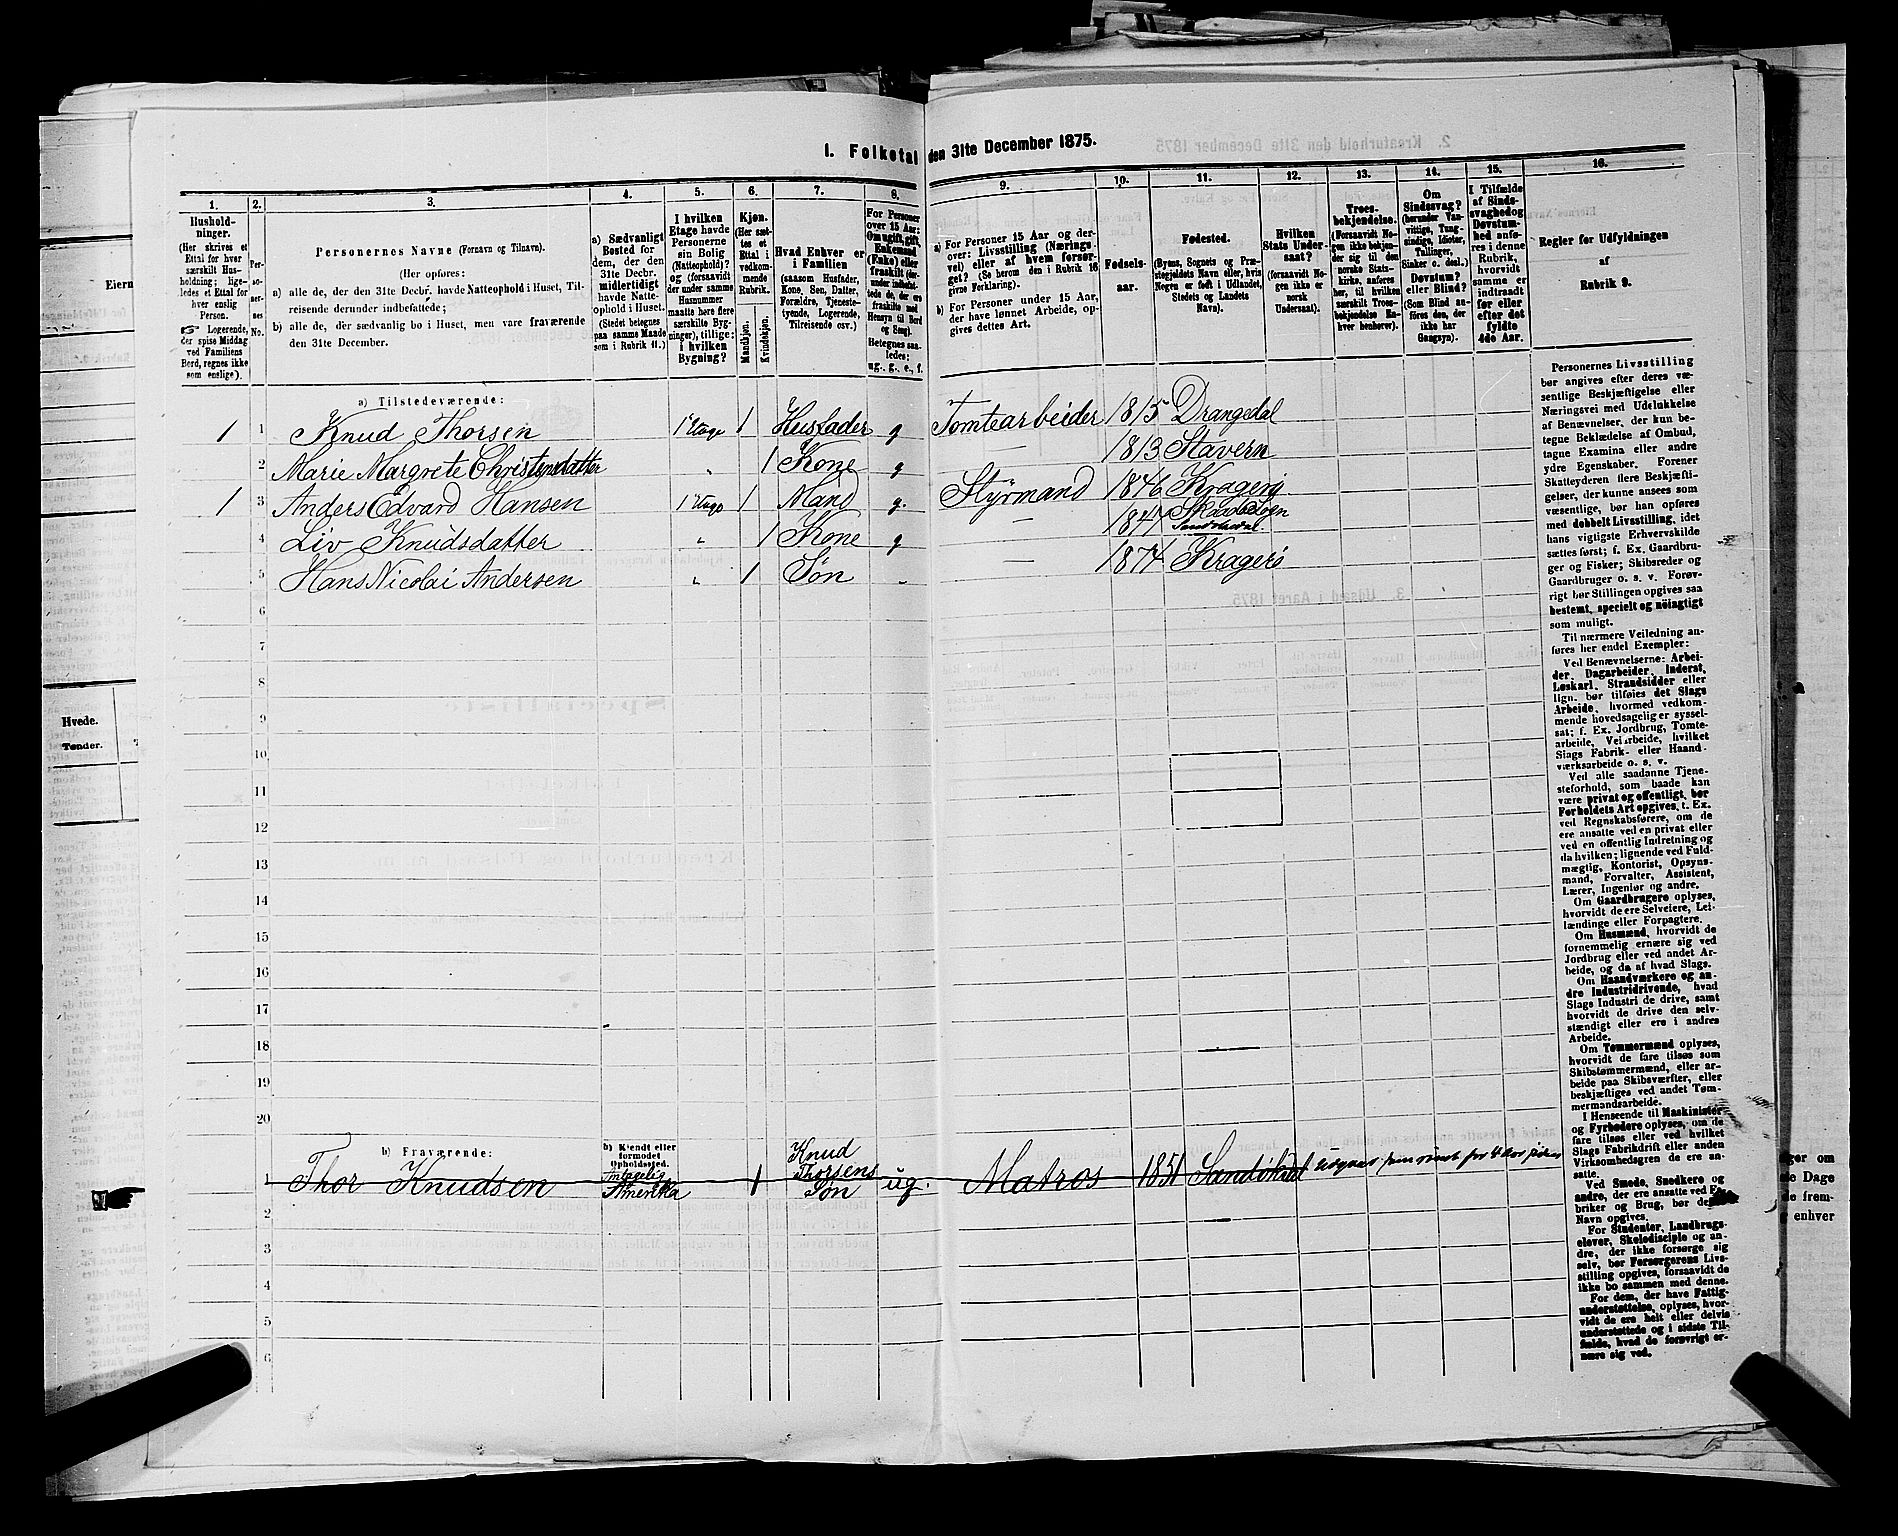 I. Folketal den 31te December 1875.
1. 2. 3. 4. 5. 6. 7. 8. 9. 10. 11. 12. 13. 14. 15. 16.
Hushold-
ninger.
(Her skrives et
Ettal for hver
særskilt Hus-
holdning; lige-
ledes et Ettal for
hver enslig
Person.
☞ Logerende,
der spise Middag
ved Familiens
Bord, regnes ikke
som enslige).
Per-
so-
ner-
nes
No.
Personernes Navne (Fornavn og Tilnavn).
(Her opføres:
a) alle de, der den 31te Decbr. havde Natteophold i Huset, Til-
reisende derunder indbefattede;
b) alle de, der sædvanlig bo i Huset, men vare fraværende
den 31te December.
a) Sædvanligt
Bosted for
dem, der den
31te Decbr.
midlertidigt
havde Natte-
ophold i Huset.
(Stedet betegnes
paa samme Maade
som i Rubrik 11.)
I hvilken
Etage havde
Personerne
sin Bolig
(Natteophold)?
(forsaavidt
der under samme
Husnummer
maatte høre flere
særskilte Byg-
ninger), tillige:
i hvilken
Bygning?
Kjøn.
(Her sæt-
tes et
Ettal i
vedkom-
mende
Rubrik.
Mandkjøn.
Kvindekjøn.
Hvad Enhver er
i Familien
(saasom Husfader,
Kone, Søn, Datter,
Forældre, Tjeneste-
tyende, Logerende,
Tilreisende osv.)
For Personer
over 15 Aar:
Om ugift, gift,
Enkemand
(Enke) eller
fraskilt (der-
under indbefat-
tede de, der ere
fraskilte med
Hensyn til Bord
og Seng).
Betegnes saa-
ledes:
ug., g., e., f.
a) For Personer 15 Aar og der-
over: Livsstilling (Nærings-
vei) eller af hvem forsør-
get? (Se herom den i Rubrik 16
givne Forklaring).
b) For Personer under 15 Aar,
der have lønnet Arbeide, op-
gives dettes Art.
Fødsels-
aar.
Fødested.
(Byens, Sognets og Præ-
stegjeldets Navn eller, hvis
Nogen er født i Udlandet,
Stedets og Landets
Navn).
Hvilken
Stats Under-
saat?
(forsaavidt No-
gen ikke er
norsk
Undersaat).
Troes-
bekjendelse.
(Forsaavidt No-
gen ikke bekjen-
der sig til den
norske Stats-
kirke, anføres
her, til hvilken
særskilt Troes-
bekjendelse En-
hver henhører).
Om
Sindssvag?
(herunder Van-
vittige, Tung-
sindige, Idioter,
Tullinger,
Sinker o. desl.)
Døvstum?
eller Blind?
(Som Blind an-
føres den, der
ikke har
Gangsyn).
I Tilfælde
af Sinds-
svaghed og
Døvstum-
hed anfø-
res i denne
Rubrik,
hvorvidt
samme er
indtraadt
før eller
efter det
fyldte
4de Aar.
Regler for Udfyldningen
af
Rubrik 9.
a) Tilstedeværende:
1 1 Knud Thorsen 1 Etage 1 Husfader g Tomtearbeider 1815 Drangedal
2 Marie Margrete Christensdatter " 1 Kone g 1813 Stavern
1 3 Anders Edvard Hansen 1 Etage 1 Mand g. Styrmand 1846 Kragerø
4 Liv Knudsdatter " 1 Kone g — 1847 Sogn
5 Hans Nicolai Andersen " 1 Søn " — 1874 Kragerø
6
7
8
9
10
11
12
13
14
15
16
17
18
19
20
b) Fraværende:
b) Kjendt eller
formodet
Opholdssted.
1 Thor Knudsen Antagelig Amerika 1 Knud Thorsens Søn ug. Matros 1851
2
3
4
5
6
Personernes Livsstilling
bør angives efter deres væ-
sentlige Beskjæftigelse eller
Næringsvei med Udelukkelse
af Benævnelser, der kun be-
tegne Beklædelse af Ombud,
tagne Examina eller andre
ydre Egenskaber. Forener
Skatteyderen flere Beskjæfti-
gelser, der kunne ansees som
væsentlige, bør han opføres
med dobbelt Livsstilling, idet
hans vigtigste Erhvervskilde
sættes først; f. Ex. Gaardbru-
ger og Fisker; Skibsreder og
Gaardbruger o. s. v. Forøv-
rigt bør Stillingen opgives saa
bestemt, specielt og nöiagtigt
som muligt.
Til nærmere Veiledning an-
føres her endel Exempler:
Ved Benævnelserne: Arbei-
der, Dagarbeider, Inderst,
Løskarl, Strandsidder eller
lign. bør tilføies det Slags
Arbeide, hvormed vedkom-
mende hovedsagelig er syssel-
sat; f. Ex. Jordbrug, Tomte-
arbeide, Veiarbeide, hvilket
Slags Fabrik- eller Haand-
værksarbeide o. s. v.
Ved alle saadanne Tjene-
steforhold, som baade kan
være privat og offentligt, bør
Forholdets Art opgives, t. Ex.
ved Regnskabsførere, om de
ere ansatte ved en privat eller
ved en offentlig Indretning og
da hvilken; lignende ved Fuld-
mægtig, Kontorist, Opsyns-
mand, Forvalter, Assistent,
Lærer, Ingeniør og andre.
Om Gaardbrugere oplyses,
hvorvidt de ere Selveiere, Lei-
lændinge eller Forpagtere.
Om Husmænd, hvorvidt de
fornemmelig ernære sig ved
Jordbrug eller ved andet Ar-
beide, og da af hvad Slags.
Om Haandværkere og an-
dre Industridrivende, hvad
Slags Industri de drive, samt
hvorvidt de drive den selv-
stændigt eller ere i andres
Arbeide.
Om Tømmermænd oplyses,
hvorvidt de fare tilsøs som
Skibstømmermænd, eller ar-
beide paa Skibsværfter, eller
beskjæftiges ved andet Tøm-
mermandsarbeide.
I Henseende til Maskinister
og Fyrbødere oplyses, om de
fare tilsøs eller ved hvilket
Slags Fabrikdrift eller anden
Virksomhedsgren de ere an-
satte.
Ved Smede, Snedkere og
andre, der ere ansatte ved Fa-
briker og Brug, bør dettes
Navn opgives.
For Studenter, Landbrugs-
elever, Skoledisciple og an-
dre, der ikke forsørge sig
selv, bør Forsørgerens Livs-
stilling opgives, forsaavidt de
ikke bo sammen med denne.
For dem, der have Fattig-
understøttelse, oplyses, hvor-
vidt de ere helt eller delvis
understøttede og i sidste Til-
fælde, hvad de forøvrigt er-
nære sig ved.
Hvede.
Tønder.